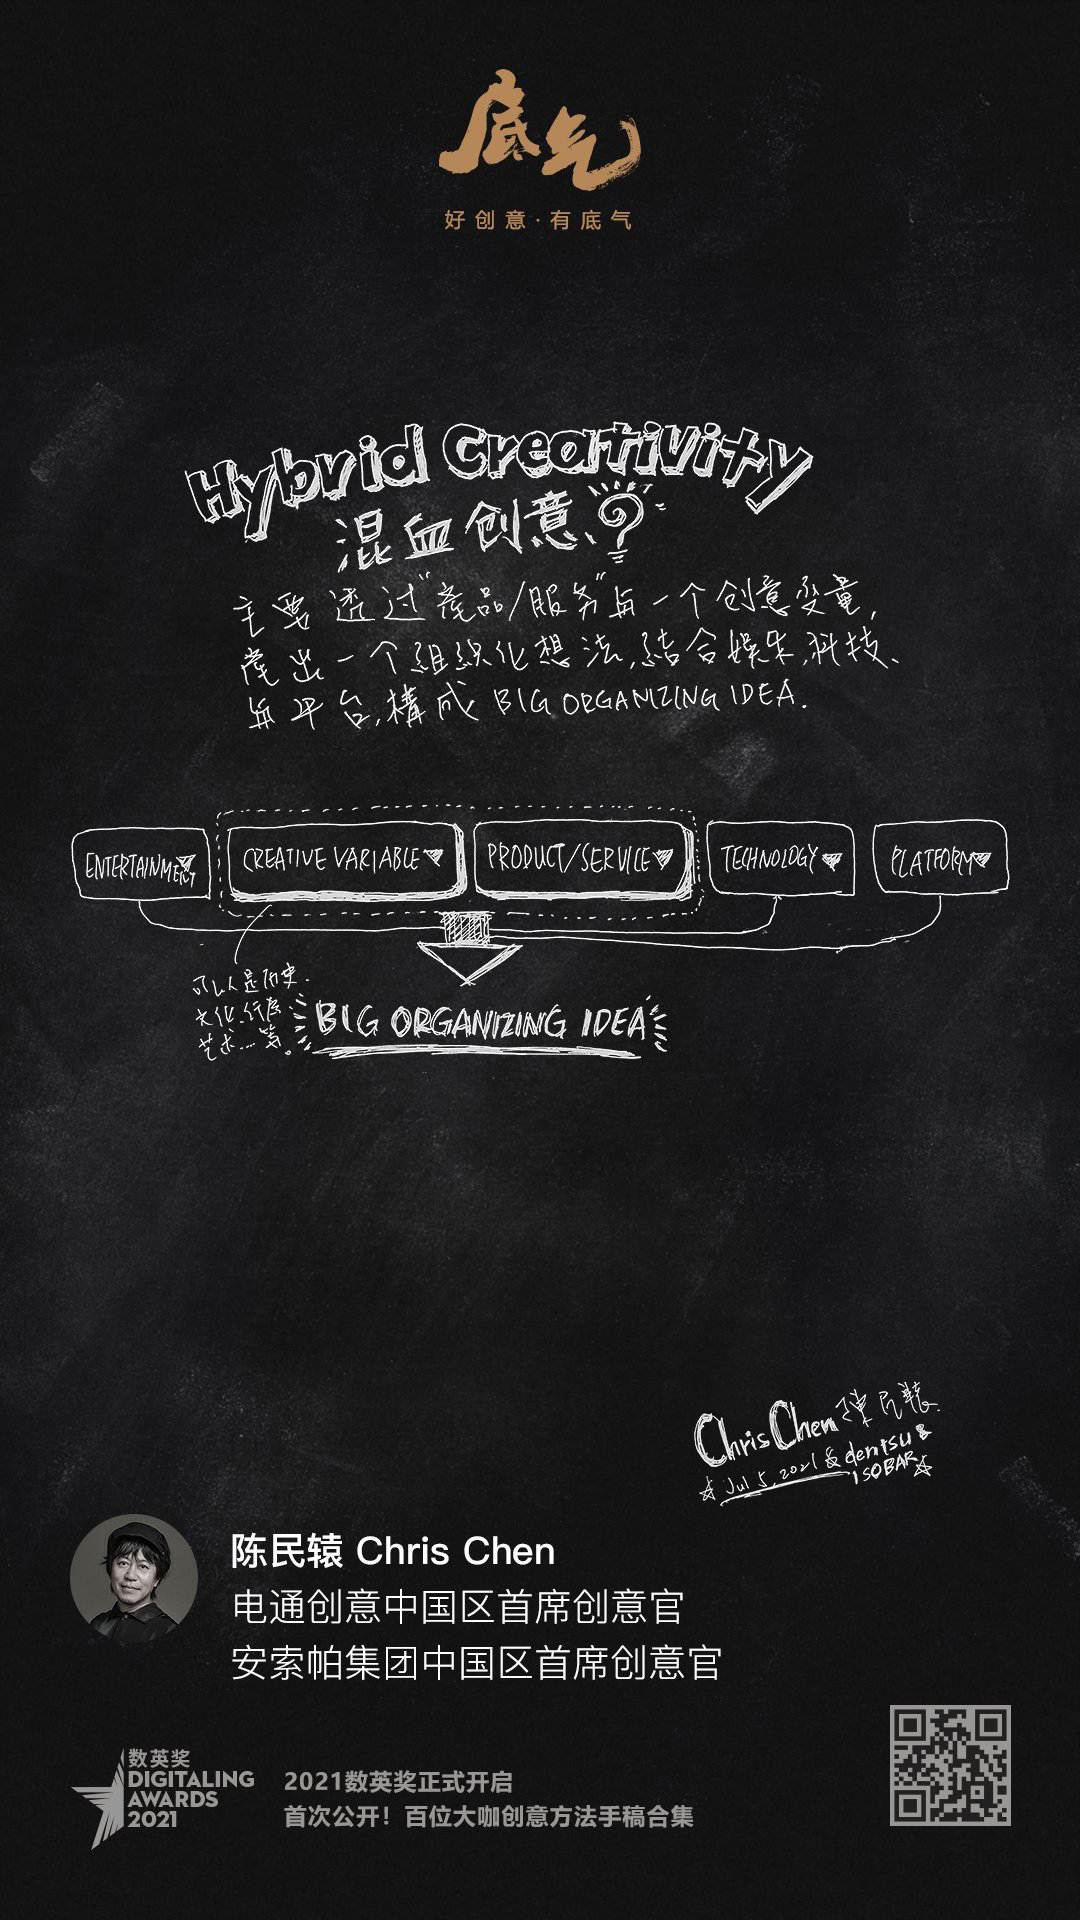 底气
好创意·有底气
Hybrid Creativity
混血创意
主要透过"產品/服务"与一个创意变量,
產出一个组织化想法,結合娱乐,科技、
与平台,構成 BIG ORGANIZING IDEA.
ENTERTAINMENT
CREATIVE VARIABLE
PRODUCT/SERVICE
TECHNOLOGY
PLATFORM
可以是历史.
文化.行为
艺术...等。
BIG ORGANIZING IDEA
Chris Chen 陳民轅.
Jul 5, 2021 & dentsu &
ISOBAR
陈民辕 Chris Chen
电通创意中国区首席创意官
安索帕集团中国区首席创意官
数英奖
DIGITALING
AWARDS
2021
2021数英奖正式开启
首次公开！百位大咖创意方法手稿合集